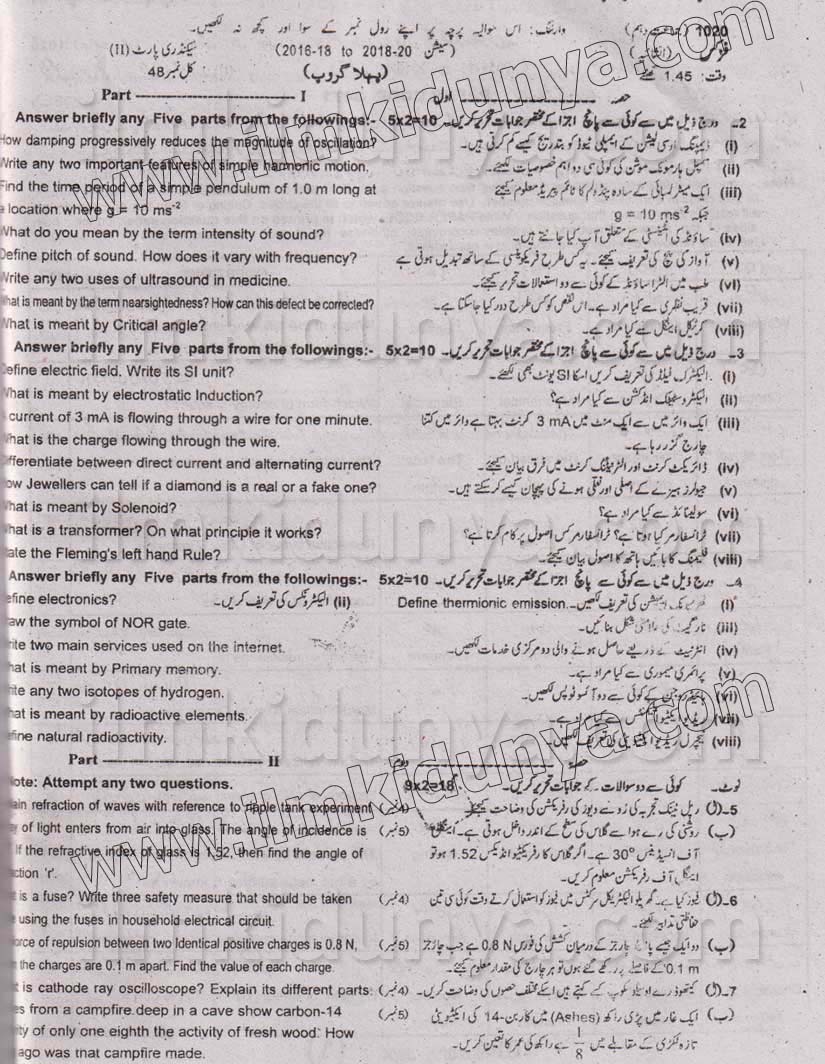 1020 وارننگ: اس سوالیہ پرچہ پر اپنے رول نمبر کے سوا اور کچھ نہ لکھیں۔
فزکس (سیشن 2018-20 to 2016-18) سیکنڈری پارٹ (II)
وقت: 1.45 گھنٹے (پہلا گروپ) کل نمبر 48
Part ---------- I حصہ ---------- اول
Answer briefly any Five parts from the followings:- 5x2=10 2۔ درج ذیل میں سے کوئی سے پانچ اجزا کے مختصر جوابات تحریر کریں۔
How damping progressively reduces the magnitude of oscillation? (i) ڈیمپنگ اوسی لیشن کے ایمپلی ٹیوڈ کو بتدریج کیسے کم کرتی ہیں۔
Write any two important features of simple harmonic motion. (ii) سمپل ہارمونک موشن کی کوئی سی دو اہم خصوصیات لکھئے۔
Find the time period of a simple pendulum of 1.0 m long at (iii) ایک میٹر لمبائی کے سادہ پنڈولم کا ٹائم پیریڈ معلوم کیجئے
a location where g = 10 ms-2 جبکہ g = 10 ms-2
What do you mean by the term intensity of sound? (iv) ساؤنڈ کی انٹینسٹی کے متعلق آپ کیا جانتے ہیں۔
Define pitch of sound. How does it vary with frequency? (v) آواز کی پچ کی تعریف کیجئے۔ یہ کس طرح فریکوئنسی کے ساتھ تبدیل ہوتی ہے
Write any two uses of ultrasound in medicine. (vi) طب میں الٹرا ساؤنڈ کے کوئی سے دو استعمالات تحریر کیجئے۔
What is meant by the term nearsightedness? How can this defect be corrected? (vii) قریب نظری سے کیا مراد ہے۔ اس نقص کو کس طرح دور کیا جا سکتا ہے۔
What is meant by Critical angle? (viii) کریٹیکل اینگل سے کیا مراد ہے۔
Answer briefly any Five parts from the followings:- 5x2=10 3۔ درج ذیل میں سے کوئی سے پانچ اجزا کے مختصر جوابات تحریر کریں۔
Define electric field. Write its SI unit? (i) الیکٹرک فیلڈ کی تعریف کریں اسکا SI یونٹ بھی لکھئے۔
What is meant by electrostatic Induction? (ii) الیکٹرو سٹیٹک انڈکشن سے کیا مراد ہے؟
current of 3 mA is flowing through a wire for one minute. (iii) ایک وائر میں سے ایک منٹ میں 3 mA کرنٹ بہتا ہے وائر میں کتنا
What is the charge flowing through the wire. چارج گزر رہا ہے۔
Differentiate between direct current and alternating current? (iv) ڈائریکٹ کرنٹ اور الٹرنیٹنگ کرنٹ میں فرق بیان کیجئے۔
How Jewellers can tell if a diamond is a real or a fake one? (v) جیولرز ہیرے کے اصلی اور نقلی ہونے کی پہچان کیسے کر سکتے ہیں۔
What is meant by Solenoid? (vi) سولینائڈ سے کیا مراد ہے؟
What is a transformer? On what principle it works? (vii) ٹرانسفارمر کیا ہوتا ہے؟ ٹرانسفارمر کس اصول پر کام کرتا ہے؟
State the Fleming's left hand Rule? (viii) فلیمنگ کا بائیں ہاتھ کا اصول بیان کیجئے۔
Answer briefly any Five parts from the followings:- 5x2=10 4۔ درج ذیل میں سے کوئی سے پانچ اجزا کے مختصر جوابات تحریر کریں۔
Define electronics? (ii) الیکٹرونکس کی تعریف کریں۔ Define thermionic emission. (i) ایمیشن کی تعریف لکھیں۔
Draw the symbol of NOR gate. (iii) نار گیٹ کی شکل بنائیں۔
Write two main services used on the internet. (iv) انٹرنیٹ کے ذریعے حاصل ہونے والی دو مرکزی خدمات لکھیں۔
What is meant by Primary memory. (v) پرائمری میموری سے کیا مراد ہے۔
Write any two isotopes of hydrogen. (vi) ہائیڈروجن کے کوئی سے دو آئسوٹوپس لکھیں۔
What is meant by radioactive elements. (vii) ریڈیو ایکٹیو ایلیمنٹس سے کیا مراد ہے۔
Define natural radioactivity. (viii) نیچرل ریڈیو ایکٹیویٹی کی تعریف لکھیں۔
Part ---------- II حصہ ---------- دوم
Note: Attempt any two questions. 9x2=18 نوٹ۔ کوئی سے دو سوالات کے جوابات تحریر کریں۔
refraction of waves with reference to ripple tank experiment (4نمبر) 5۔ (ل) رپل ٹینک تجربہ کی رو سے ویوز کی رفریکشن کی وضاحت کیجئے
of light enters from air into glass. The angle of incidence is (5نمبر) (ب) روشنی کی رے ہوا سے گلاس کی سطح کے اندر داخل ہوتی ہے۔ اینگل
If the refractive index of glass is 1.52, then find the angle of آف انسیڈینس 30° ہے۔ اگر گلاس کا رفریکٹیو انڈیکس 1.52 ہو تو
'r'. اینگل آف رفریکشن معلوم کریں۔
is a fuse? Write three safety measure that should be taken (4نمبر) 6۔ (ل) فیوز کیا ہے۔ گھریلو الیکٹریکل سرکٹس میں فیوز کو استعمال کرتے وقت کوئی سی تین
using the fuses in household electrical circuit. حفاظتی تدابیر لکھئے۔
force of repulsion between two Identical positive charges is 0.8 N, (5نمبر) (ب) دو ایک جیسے چارجز کے درمیان کشش کی فورس 0.8 N ہے جب چارجز
the charges are 0.1 m apart. Find the value of each charge. 0.1 m کے فاصلے پر رکھے گئے ہوں تو ہر چارج کی مقدار معلوم کیجئے۔
is cathode ray oscilloscope? Explain its different parts. (4نمبر) 7۔ (ل) کیتھوڈ رے اوسیلو سکوپ کسے کہتے ہیں اسکے مختلف حصوں کی وضاحت کریں۔
from a campfire deep in a cave show carbon-14 (5نمبر) (ب) ایک غار میں پڑی راکھ (Ashes) میں کاربن-14 کی ایکٹیویٹی
of only one eighth the activity of fresh wood. How تازہ لکڑی کے مقابلے میں 1/8 ہے راکھ کی عمر کا تعین کریں۔
ago was that campfire made.
www.ilmkidunya.com
ilmkidunya.com